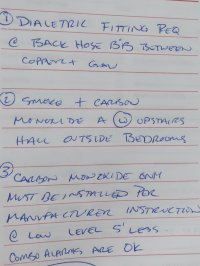 ① DIALETRIC FITTING REQ
@ BACK HOSE BIB BETWEEN
COPPER + GALV
② SMOKE + CARBON
MONOXIDE A Ⓦ UPSTAIRS
HALL OUTSIDE BEDROOMS
③ CARBON MONOXIDE ONLY
MUST BE INSTALLED PER
MANUFACTURER INSTRUCTION
@ LOW LEVEL 5' LESS.
COMBO ALARMS ARE OK